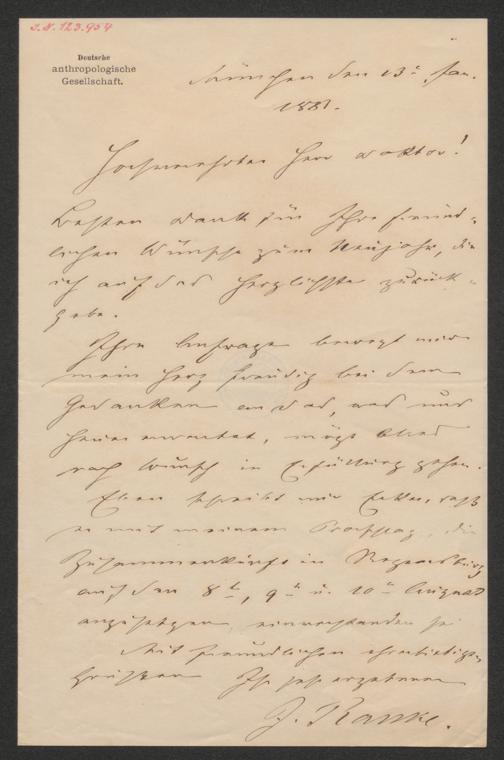 J.N. 123.954
Deutsche
anthropologische
Gesellschaft.
München den 13t Jan.
1881.
Hochverehrter Herr Doktor!
Besten Dank für Ihre freund-
lichen Wünsche zum Neujahr, die
ich auf das herzlichste zurück-
gebe.
Ihre Anfrage bewegt mir
mein Herz freudig bei dem
Gedanken an das, was uns
heuer erwartet, möge Alles
nach Wunsch in Erfüllung gehen.
Eben schreibt mir Ecker, daß
er mit meinem Vorschlag, die
Zusammenkunft in Regensburg
auf den 8t, 9t u. 10t August
anzusetzen, einverstanden sei
Mit freundlichen ehrerbietigen
Grüßen Ihr sehr ergebener
J. Ranke.